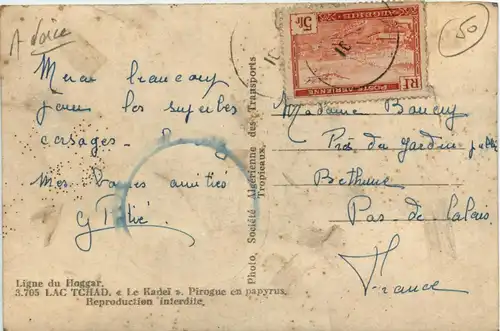 A voice
50
5fr
ALGERIE
RF
POSTE AERIENNE
Merci beaucoup
pour les superbes
corsages.
Mes bonnes amitiés
Photo. Société Algérienne des Transports
Tropicaux.
Madame
Près du jardin public
Bethune
Pas de Calais
France
Ligne du Hoggar.
3.705 LAC TCHAD. « Le Kadeï ». Pirogue en papyrus.
Reproduction interdite.